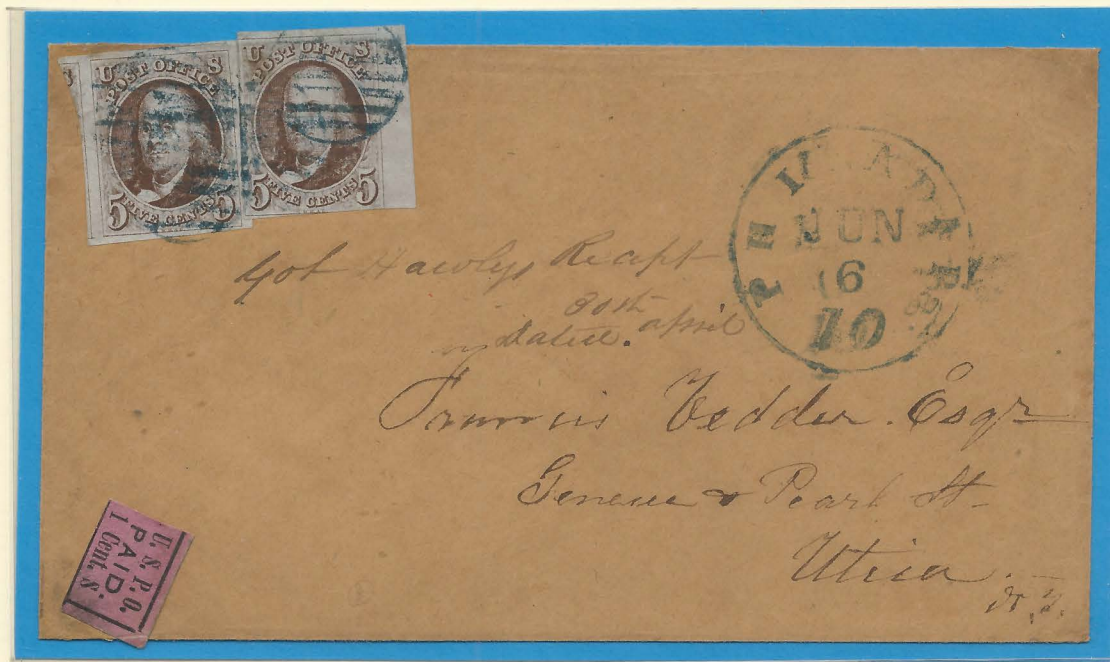 U S
POST OFFICE
5 5
FIVE CENTS
U S
POST OFFICE
5 5
FIVE CENTS
S
PHILADA. Pa.
JUN
16
10
Got Hawlys Recapt
30th
dated. april
Francis Vedder. Esqr
Genesee & Pearl St
Utica
N.Y.
U. S. P. O.
PAID.
1 Cent. S.